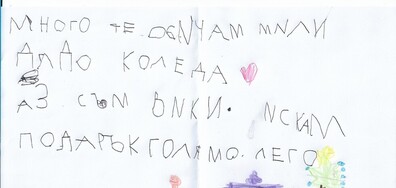 МНОГО ТЕ ОБИЧАМ МИЛИ
ДЯДО КОЛЕДА
АЗ СЪМ ВИКИ. ИСКАМ
ПОДАРЪК ГОЛЯМО. ЛЕГО